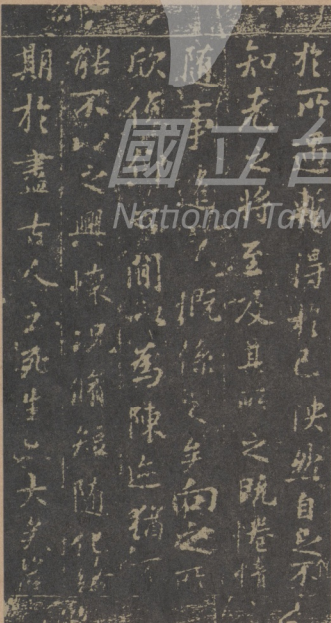 於所遇蹔得於己怏然自足不
知老之將至及其所之既惓情
隨事遷慨係之矣向之所
欣俛間以為陳迹猶不
能不以之興懷況脩短隨化終
期於盡古人云死生亦大矣豈
國立
National Taiw